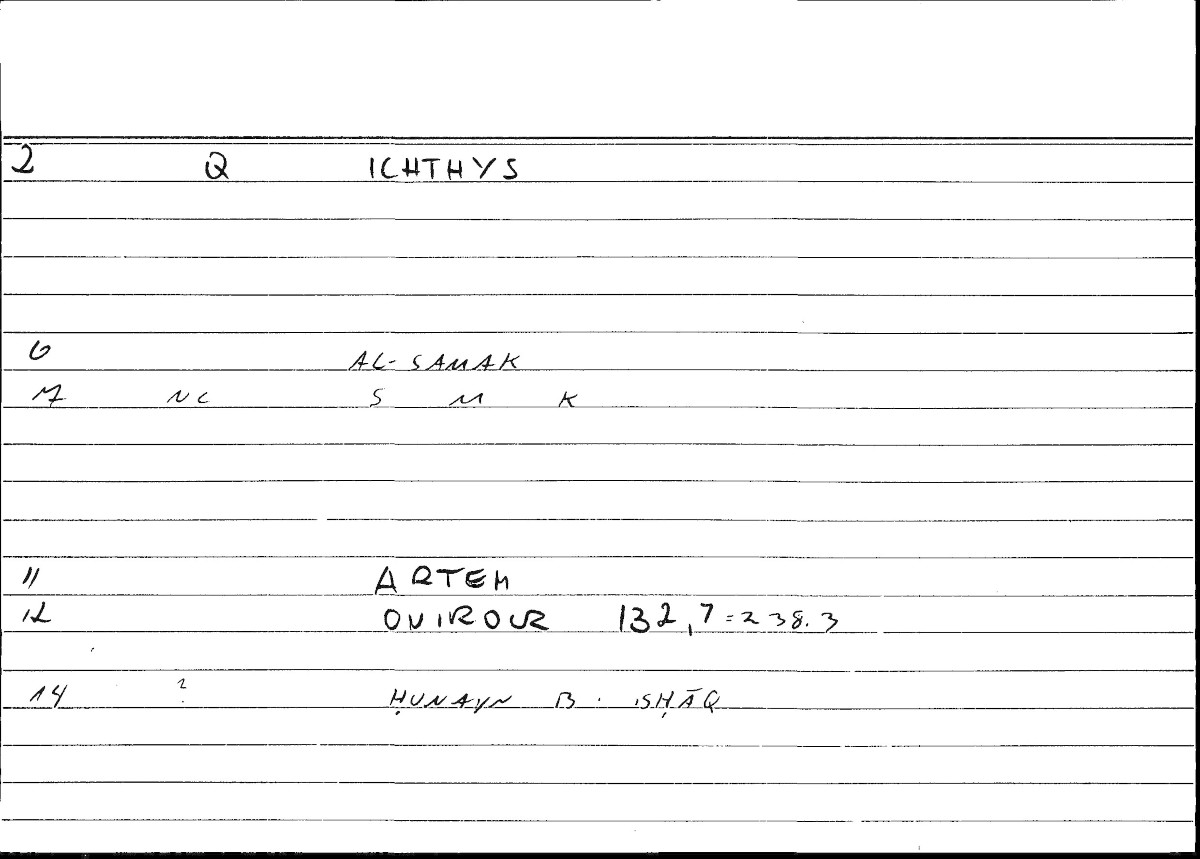 2 Q ICHTHYS
6 AL-SAMAK
7 NC S M K
11 ARTEM
12 OVIROUR 132,7=238.3
14 ? ḤUNAYN B. ISḤĀQ